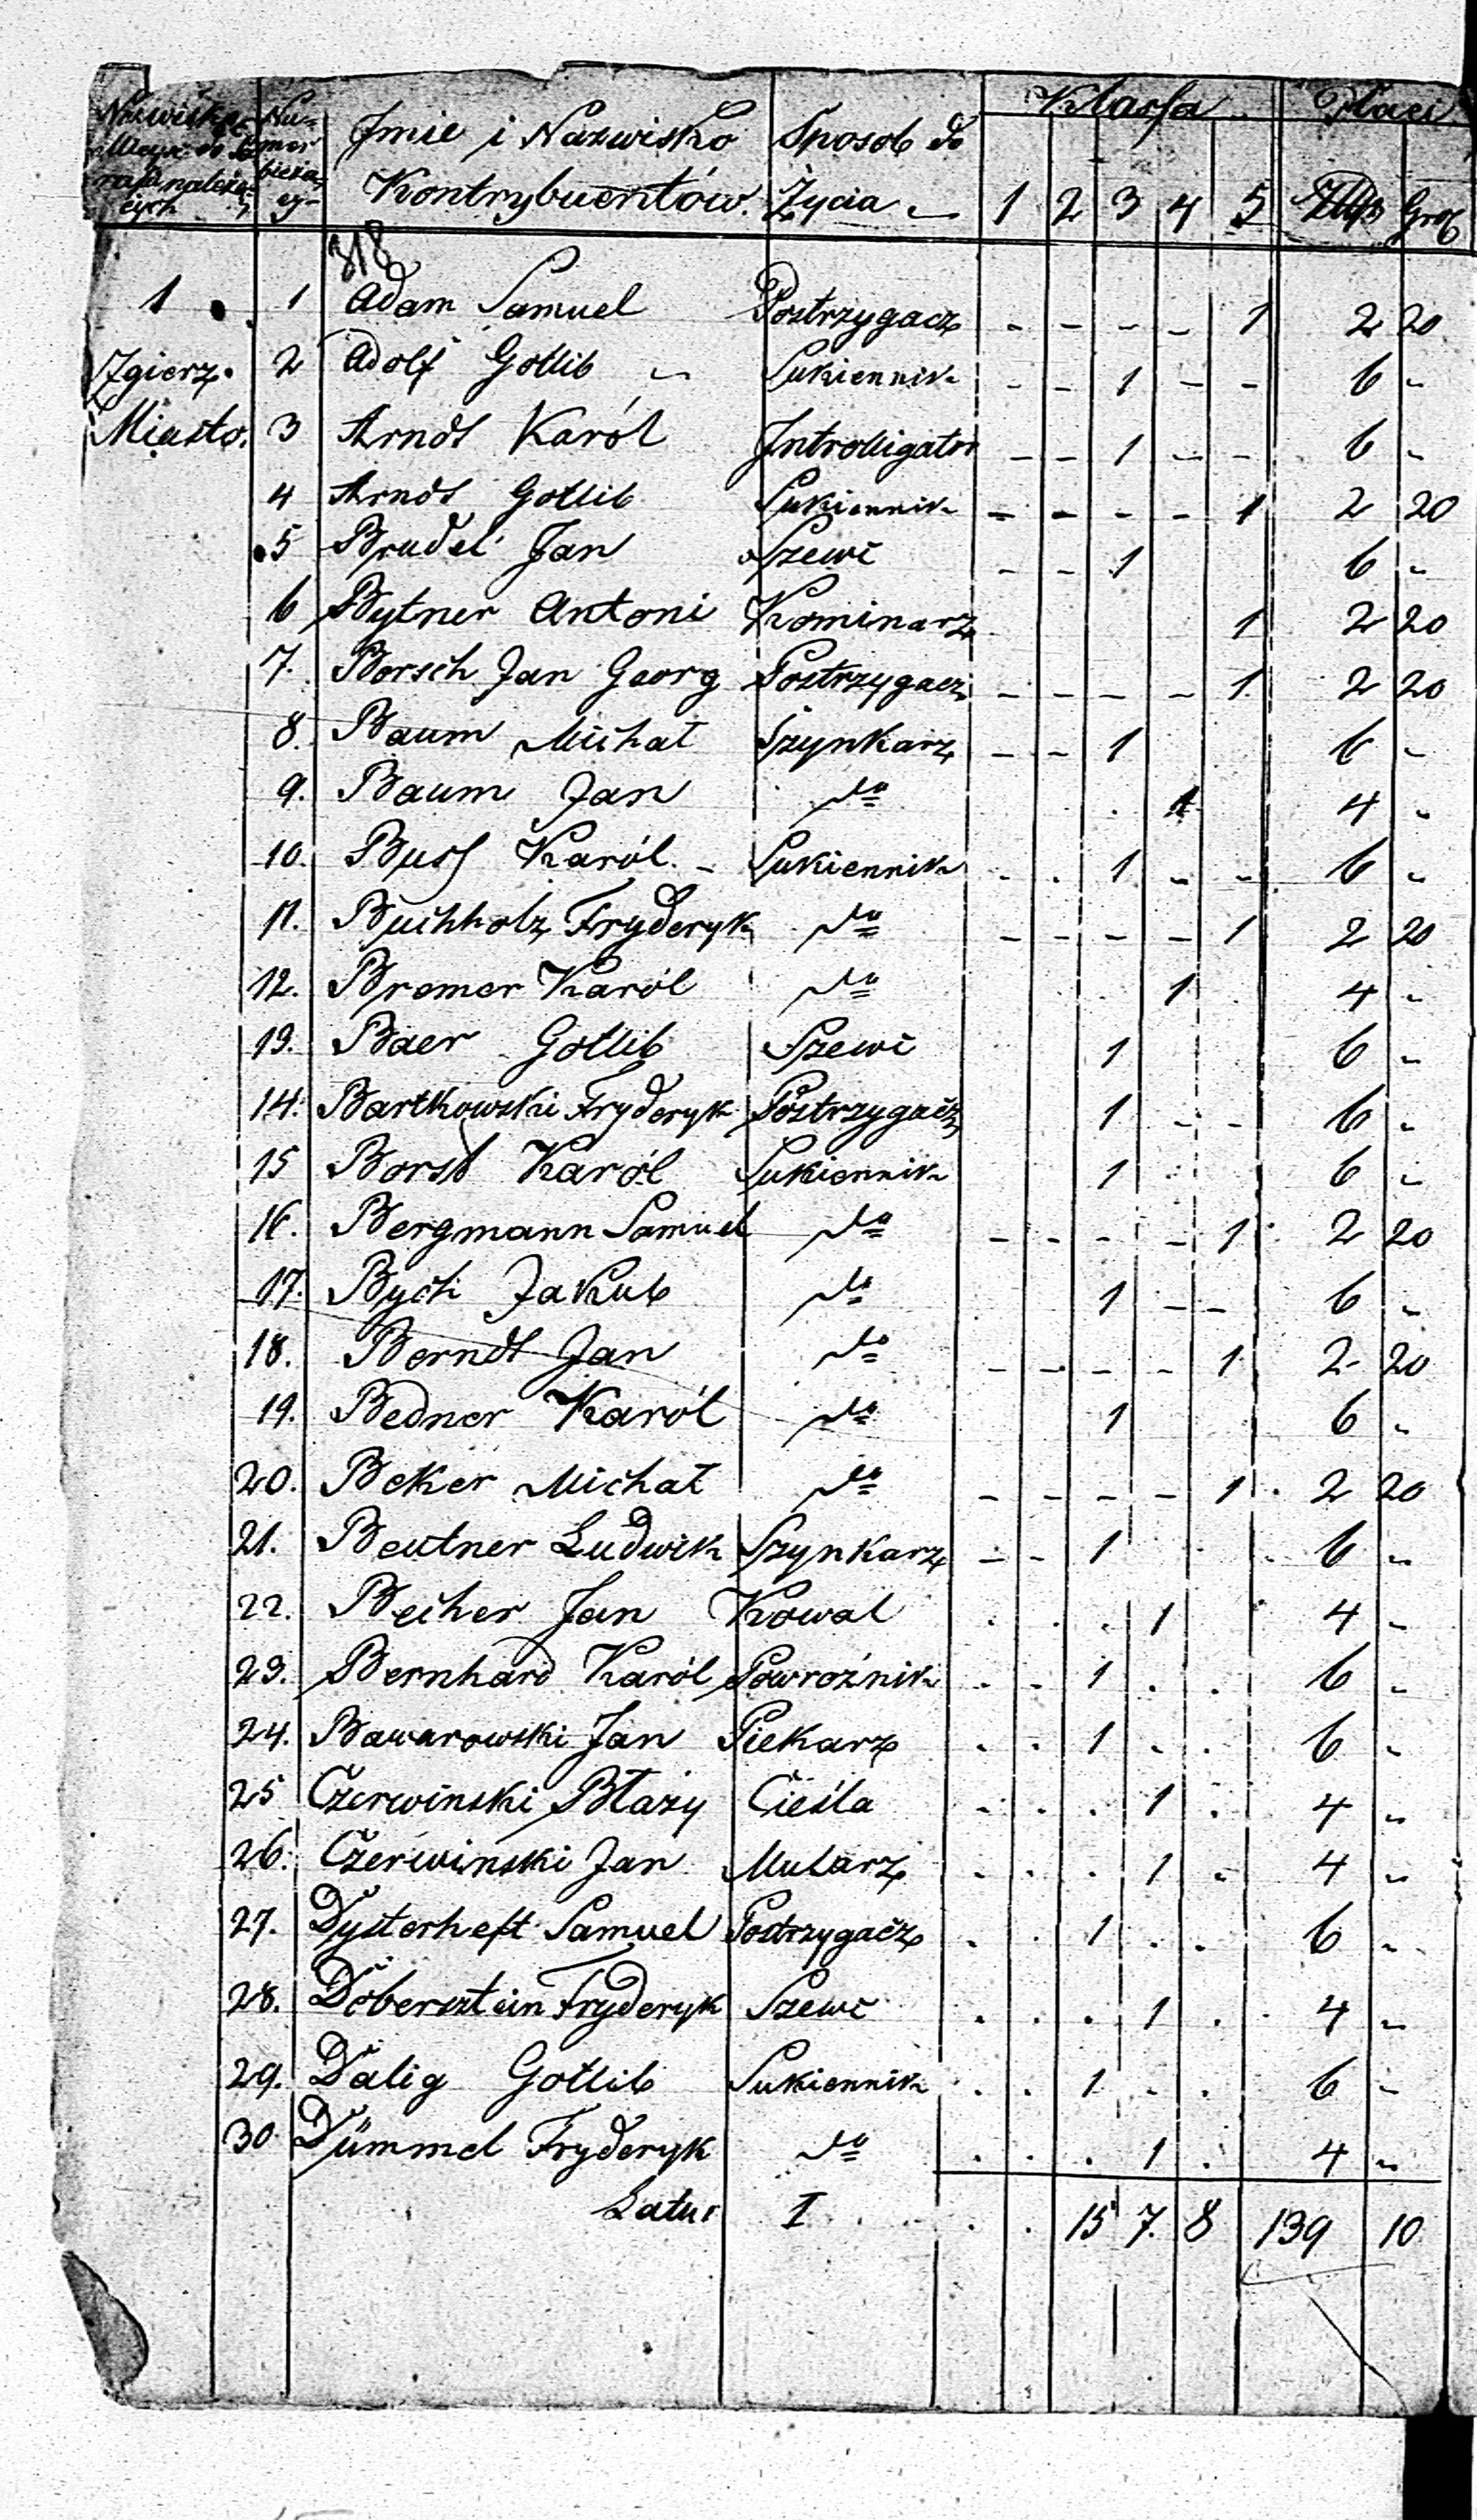 Nazwiska Nu= Imie i Nazwisko Sposob do Klassa Płaci
Miast do Pa mer
rafii należą= bieżą Kontrybuentów. Życia 1 2 3 4 5 Złtp Gro
cych cy-
318
1 1 Adam Samuel Postrzygacz - - - - 1 2 20
Zgierz. 2 Adolf Gottlib Sukiennik - - 1 - - 6 -
Miasto. 3 Arndt Karól Introlligator - - 1 - - 6 -
4 Arndt Gottlib Sukiennik - - - - 1 2 20
5 Brudel Jan Szewc - - 1 6 -
6 Bytner Antoni Kominarz 1 2 20
7. Borsch Jan Georg Postrzygacz - - - - 1. 2 20
8. Baum Michał Szynkarz - - 1 6 -
9. Baum Jan do 1 4 -
10. Buss Karól - Sukiennik . . 1 - - 6 -
11. Buchholz Fryderyk do - - - - 1 2 20
12. Bremer Karól do 1 4 -
13. Baer Gottlib Szewc 1 6 -
14. Bartkowski Fryderyk Postrzygacz 1 - - 6 -
15 Borst Karól Sukiennik 1 6 -
16. Bergmann Samuel do - - - - 1 2 20
17. Bych Jakub do 1 - - 6 -
18. Berndt Jan do - - - - 1 2 20
19. Bedner Karól do 1 6 -
20. Beker Michał do - - - - 1 2 20
21. Beutner Ludwik Szynkarz - - 1 6 -
22. Becher Jan Kowal . . . 1 4 -
23. Bernhard Karól Powroźnik . . 1 . . 6 -
24. Bawarowski Jan Piekarz . . 1 . . 6 -
25 Czerwinski Błaży Cieśla . . . 1 . 4 -
26. Czerwinski Jan Mularz . . . 1 - 4 -
27. Dysterheft Samuel Postrzygacz . . 1 . . 6 -
28. Döbersztein Fryderyk Szewc . . . 1 . 4 -
29. Dalig Gottlib Sukiennik . . 1 . . 6 -
30 Dümmel Fryderyk do . . . 1 . 4 -
Latus I . . 15 7. 8 139 10